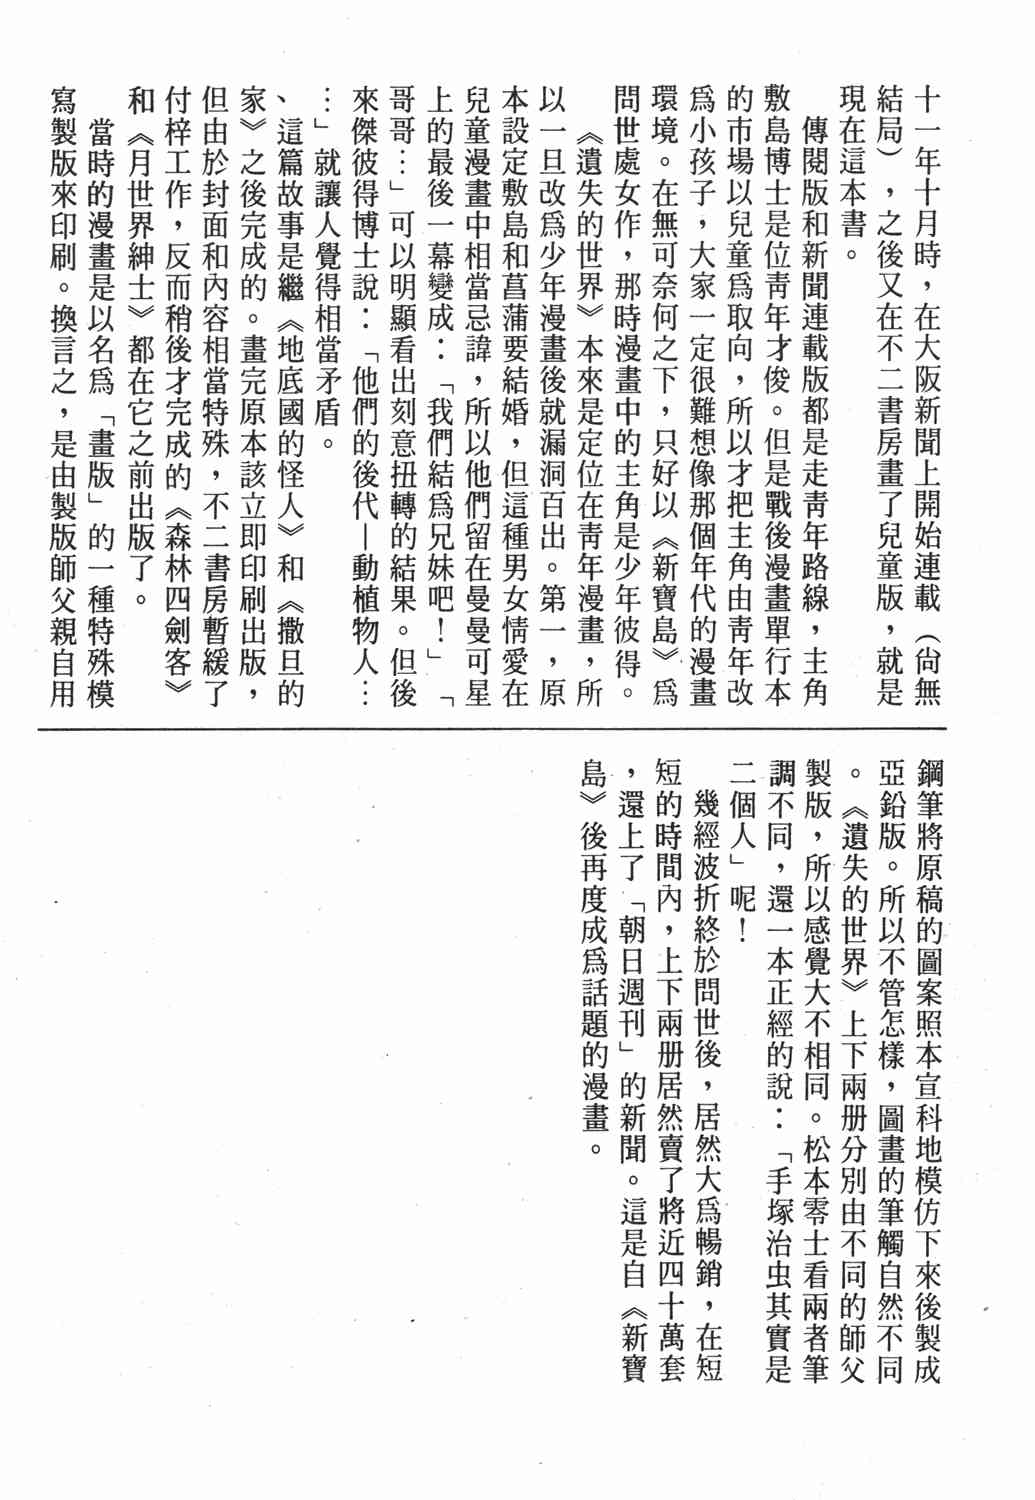 十一年十月時，在大阪新聞上開始連載（尙無
結局），之後又在不二書房畫了兒童版，就是
現在這本書。
傳閱版和新聞連載版都是走靑年路線，主角
敷島博士是位靑年才俊。但是戰後漫畫單行本
的市場以兒童爲取向，所以才把主角由靑年改
爲小孩子，大家一定很難想像那個年代的漫畫
環境。在無可奈何之下，只好以《新寶島》爲
問世處女作，那時漫畫中的主角是少年彼得。
《遺失的世界》本來是定位在靑年漫畫，所
以一旦改爲少年漫畫後就漏洞百出。第一，原
本設定敷島和菖蒲要結婚，但這種男女情愛在
兒童漫畫中相當忌諱，所以他們留在曼曼可星
上的最後一幕變成：「我們結爲兄妹吧！」「
哥哥…」可以明顯看出刻意扭轉的結果。但後
來傑彼得博士說：「他們的後代—動植物人…
…」就讓人覺得相當矛盾。
、這篇故事是繼《地底國的怪人》和《撒旦的
家》之後完成的。畫完原本該立即印刷出版，
但由於封面和內容相當特殊，不二書房暫緩了
付梓工作，反而稍後才完成的《森林四劍客》
和《月世界紳士》都在它之前出版了。
當時的漫畫是以名爲「畫版」的一種特殊模
寫製版來印刷。換言之，是由製版師父親自用
鋼筆將原稿的圖案照本宣科地模仿下來後製成
亞鉛版。所以不管怎樣，圖畫的筆觸自然不同
。《遺失的世界》上下兩册分別由不同的師父
製版，所以感覺大不相同。松本零士看兩者筆
調不同，還一本正經的說：「手塚治虫其實是
二個人」呢！
幾經波折終於問世後，居然大爲暢銷，在短
短的時間內，上下兩册居然賣了將近四十萬套
，還上了「朝日週刊」的新聞。這是自《新寶
島》後再度成爲話題的漫畫。